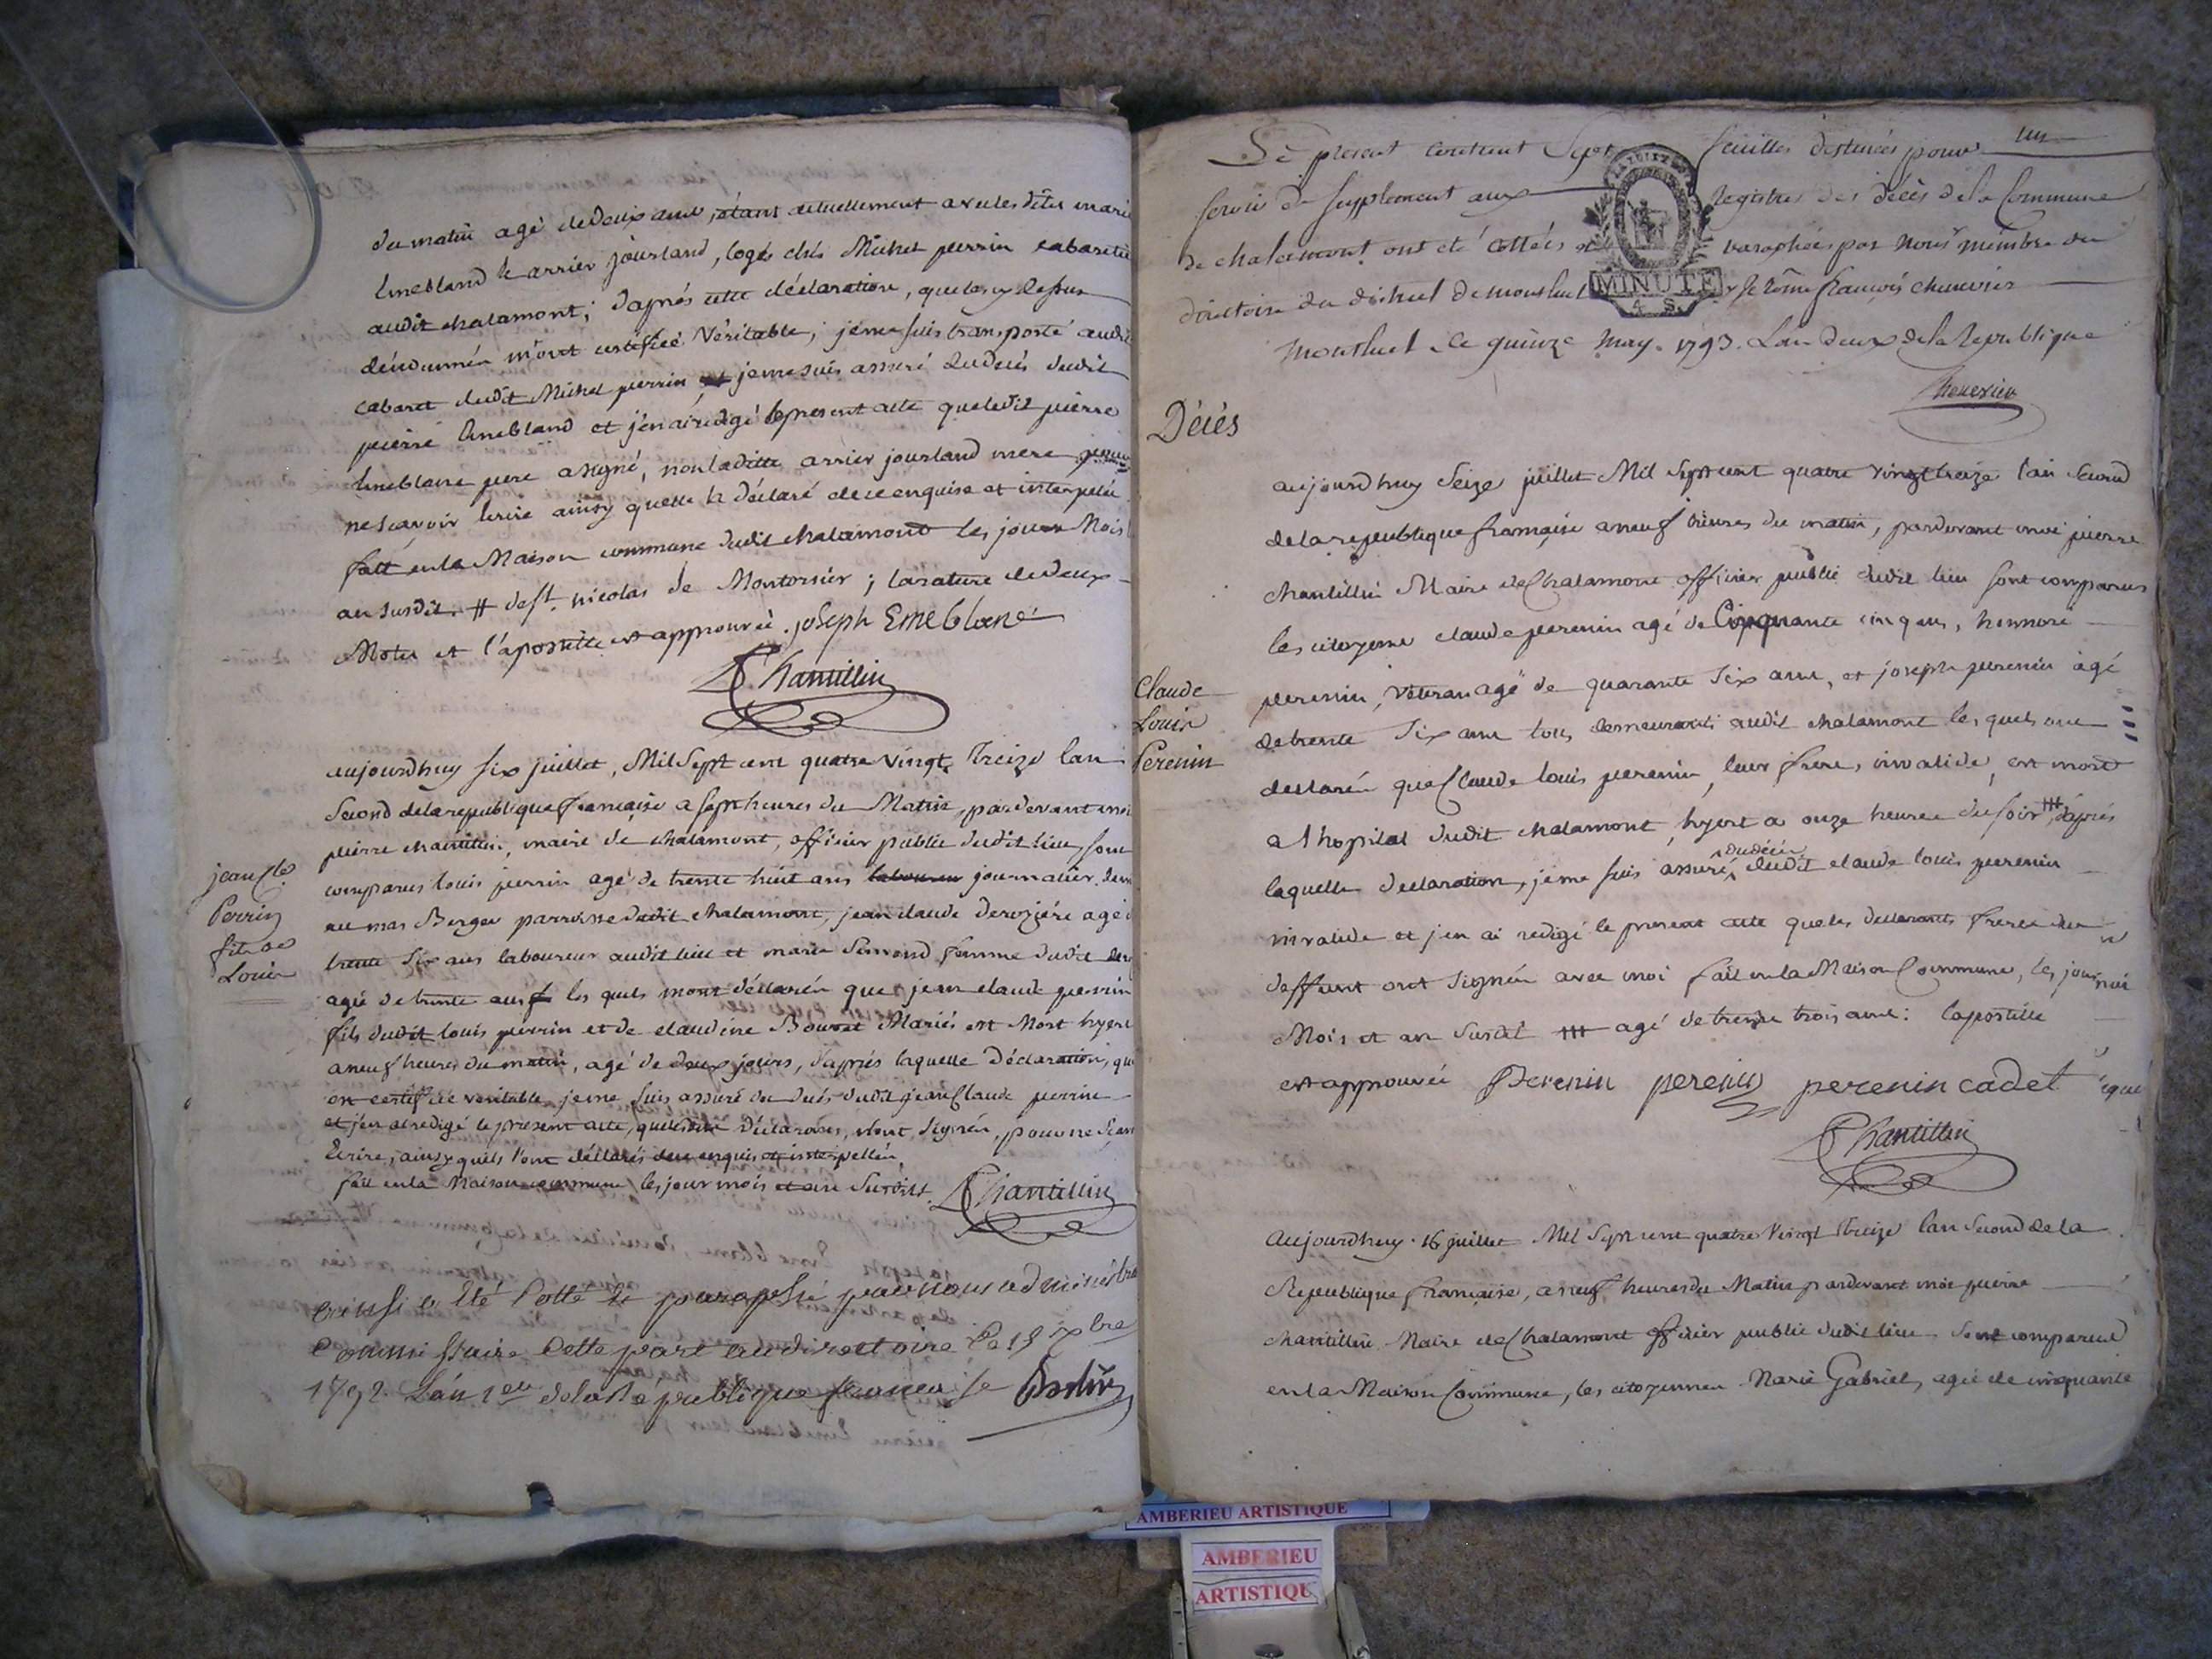 du matin agé de deux ans, étant actuellement avec les dites mariés
Emebland & arrier jourland, logés chés Michel perrin cabaretier
audit chalamont; d'aprés cette déclaration, que les cy dessus
dénommés m'ont certifiée Véritable; je me suis transporté audit
cabaret dudit Michel perrin et je me suis assuré du décés dudit
pierre Emebland et j'en ai redigé le present acte que ledit pierre
Emeblanc pere a signé, non laditte arrier jourland mere pour
ne sçavoir Ecrire ainsy quelle l'a déclaré de ce enquise et interpelée
fait en la Maison commune dudit chalamont les jour Mois
an susdit. # de st. nicolas de Montorsier; la rature de deux
Mots et l'apostille est approuvée. joseph Emeblanc
Chantillin
jean Cde.
Perrin
fils de
Louis
aujourdhuy six juillet, Mil Sept cent quatre vingt Treize lan
Second de la republique francaise a sept heures du Matin, par devant moi
pierre chantillin, maire de chalamont, officier public dudit lieu, sont
comparus louis perrin agé de trente huit ans laboureur journalier, dem
au mas Berger parroisse dudit chalamont, jean claude derozière agé d
trente six ans laboureur audit lieu et marie Simond femme dudit dero
agée de trente ans les quels m'ont déclarés que jean claude perrin
fils dudit louis perrin et de claudine Bouvet Mariés est Mort hyert
a neuf heures du matin, agé de deux jours, d'aprés laquelle Déclaration, qui
est certifiée veritable je me suis assuré du decés dudit jean Claude perrin
et j'en ai redigé le présent acte, que lesdits Déclarans, n'ont signés, pour ne sçav
Ecrire, ainsy quils l'ont déclarés de ce enquis et interpellés,
fait en la Maison commune les jour mois et an susdits. Chantillin
ainsi a été Cotté & paraphé par nous administra
Commissaire Cette part au directoire le 15 xbre
1792. L'an 1er de la République francaise
Le present contenant Sept feuilles destinées pour un
servir de supplement aux Registres des décès de la Commune
de chalamont ont été cottées et paraphées par Nous membre du
directoire du district de montluel Jerôme françois chenevier
MINUTE
4 S.
montluel, Ce quinze may. 1793. L'an deux de la République
Chenevier
Décés
aujourdhuy Seize juillet Mil Sept cent quatre vingt treize l'an Second
de la republique française a neuf heures du matin, pardevant moi pierre
chantillin Maire de Chalamont officier public dudit lieu sont comparus
les citoyens claude perenin agé de Cinquante cinq ans, honnoré
Claude
Louis
Perenin
perenin, veteran agé de quarante Six ans, et joseph perenin agé
de trente Six ans tous demeurants audit chalamont les quels ont
déclarés que Claude louis perenin, leur frere, invalide, est mort
a l hopital dudit chalamont hyert a onze heures du soir, ### d'aprés
laquelle declaration, je me suis assuré du décés dudit claude louis perenin
invalide et j'en ai redigé le present acte que les declarants freres du
deffunt ont signés avec moi fait en la Maison Commune, les jour
Mois et an susdit ### agé de trente trois ans: lapostille
est approuvée Perenin perenin perenin cadet
Chantillin
Aujourdhuy 16 juillet Mil Sept cent quatre Vingt Treize lan Second de la
Republique française, a neuf heures du Matin pardevant moi pierre
chantillin Maire de Chalamont officier public dudit lieu Sont comparus
en la Maison Commune, les citoyennes Marie Gabriel, agée de cinquante
AMBERIEU ARTISTIQUE
AMBERIEU
ARTISTIQU